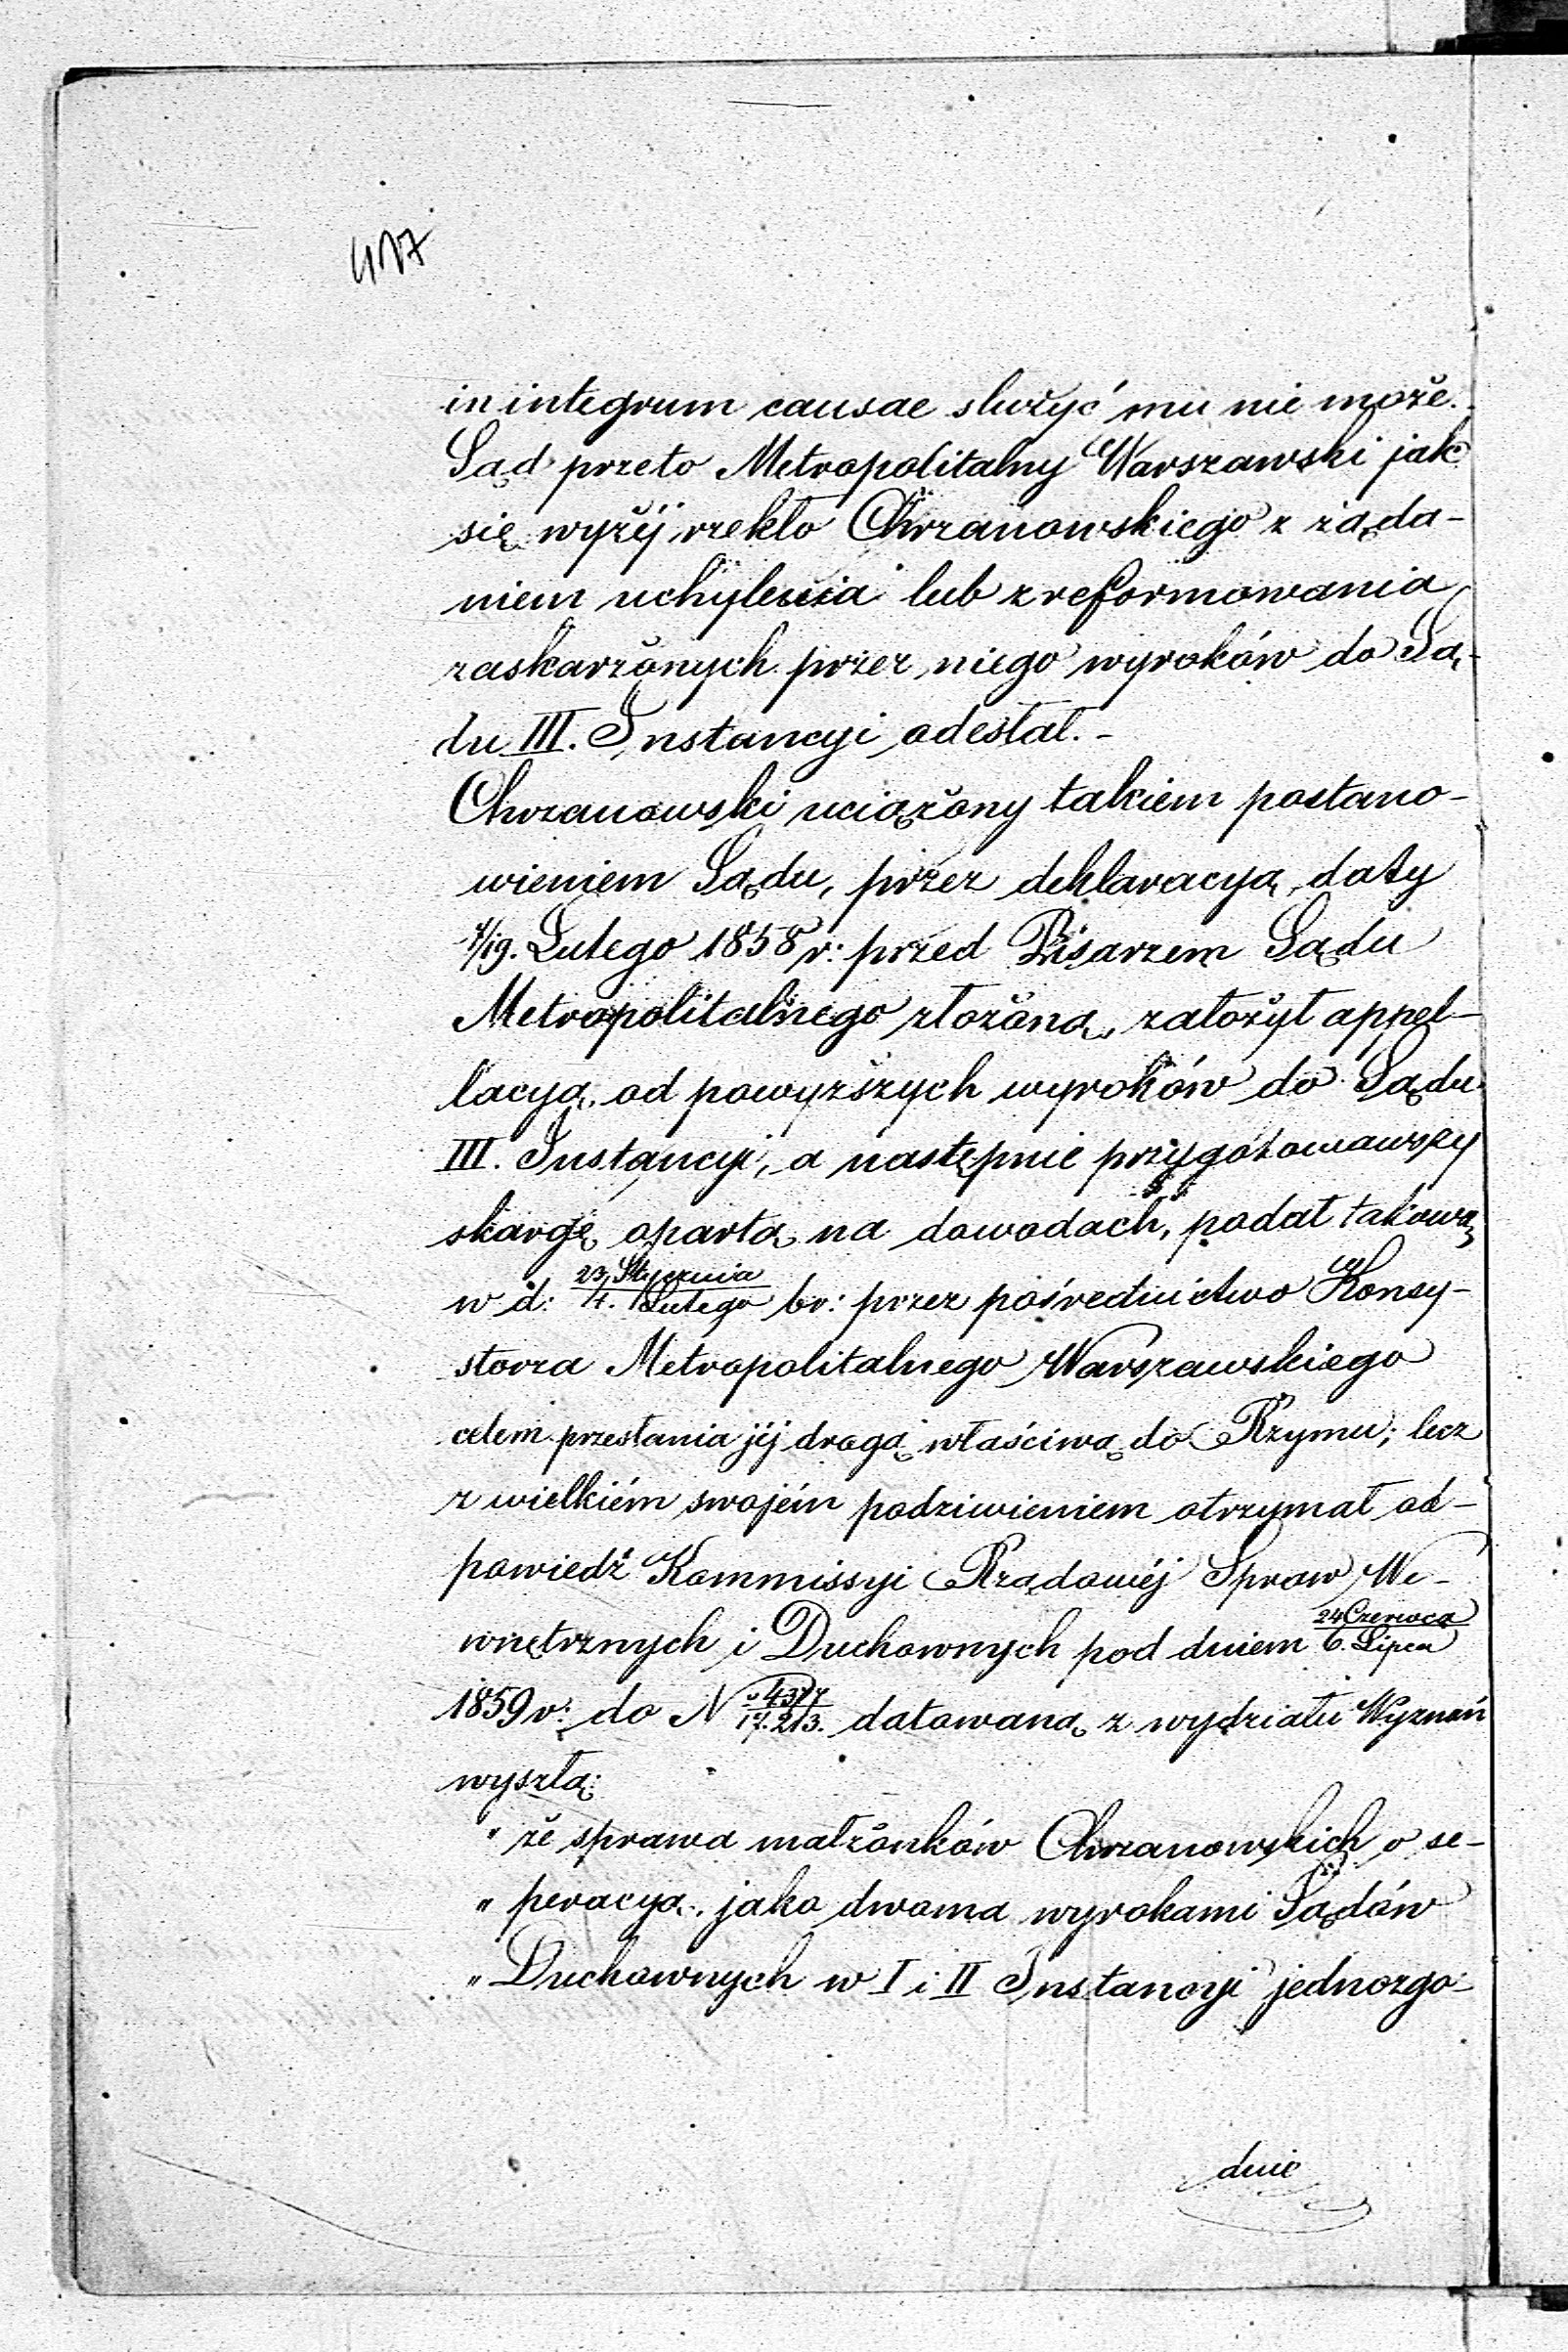 417
in integrum causae służyć mu nie może.
Sąd przeto Metropolitalny Warszawski jak
się wyżéj rzekło Chrzanowskiego z żąda-
niem uchylenia lub zreformowania
zaskarżonych przez niego wyroków do Są-
du III. Instancyi odesłał.-
Chrzanowski uciążony takiem postano-
wieniem Sądu, przez deklaracyą daty
7/19. Lutego 1858 r: przed Pisarzem Sądu
Metropolitalnego złożoną, założył appel-
lacyą od powyższych wyroków do Sądu
III. Instancyi, a następnie przygotowawszy
skargę opartą na dowodach, podał takową
w d: 23 Stycznia / 4. Lutego br: przez pośrednictwo Konsy-
storza Metropolitalnego Warszawskiego
celem przesłania jéj drogą właściwą do Rzymu; lecz
z wielkiém swojém podziwieniem otrzymał od-
powiedź Kommissyi Rządowéj Spraw We-
wnętrznych i Duchownych pod dniem 24 Czerwca / 6. Lipca
1859 r: do N datowaną z wydziału Wyznań
wyszłą:
" że sprawa małżonków Chrzanowskich o se-
" peracyą jako dwoma wyrokami Sądów
" Duchownych w I i II Instancyi jednozgo-
dnie